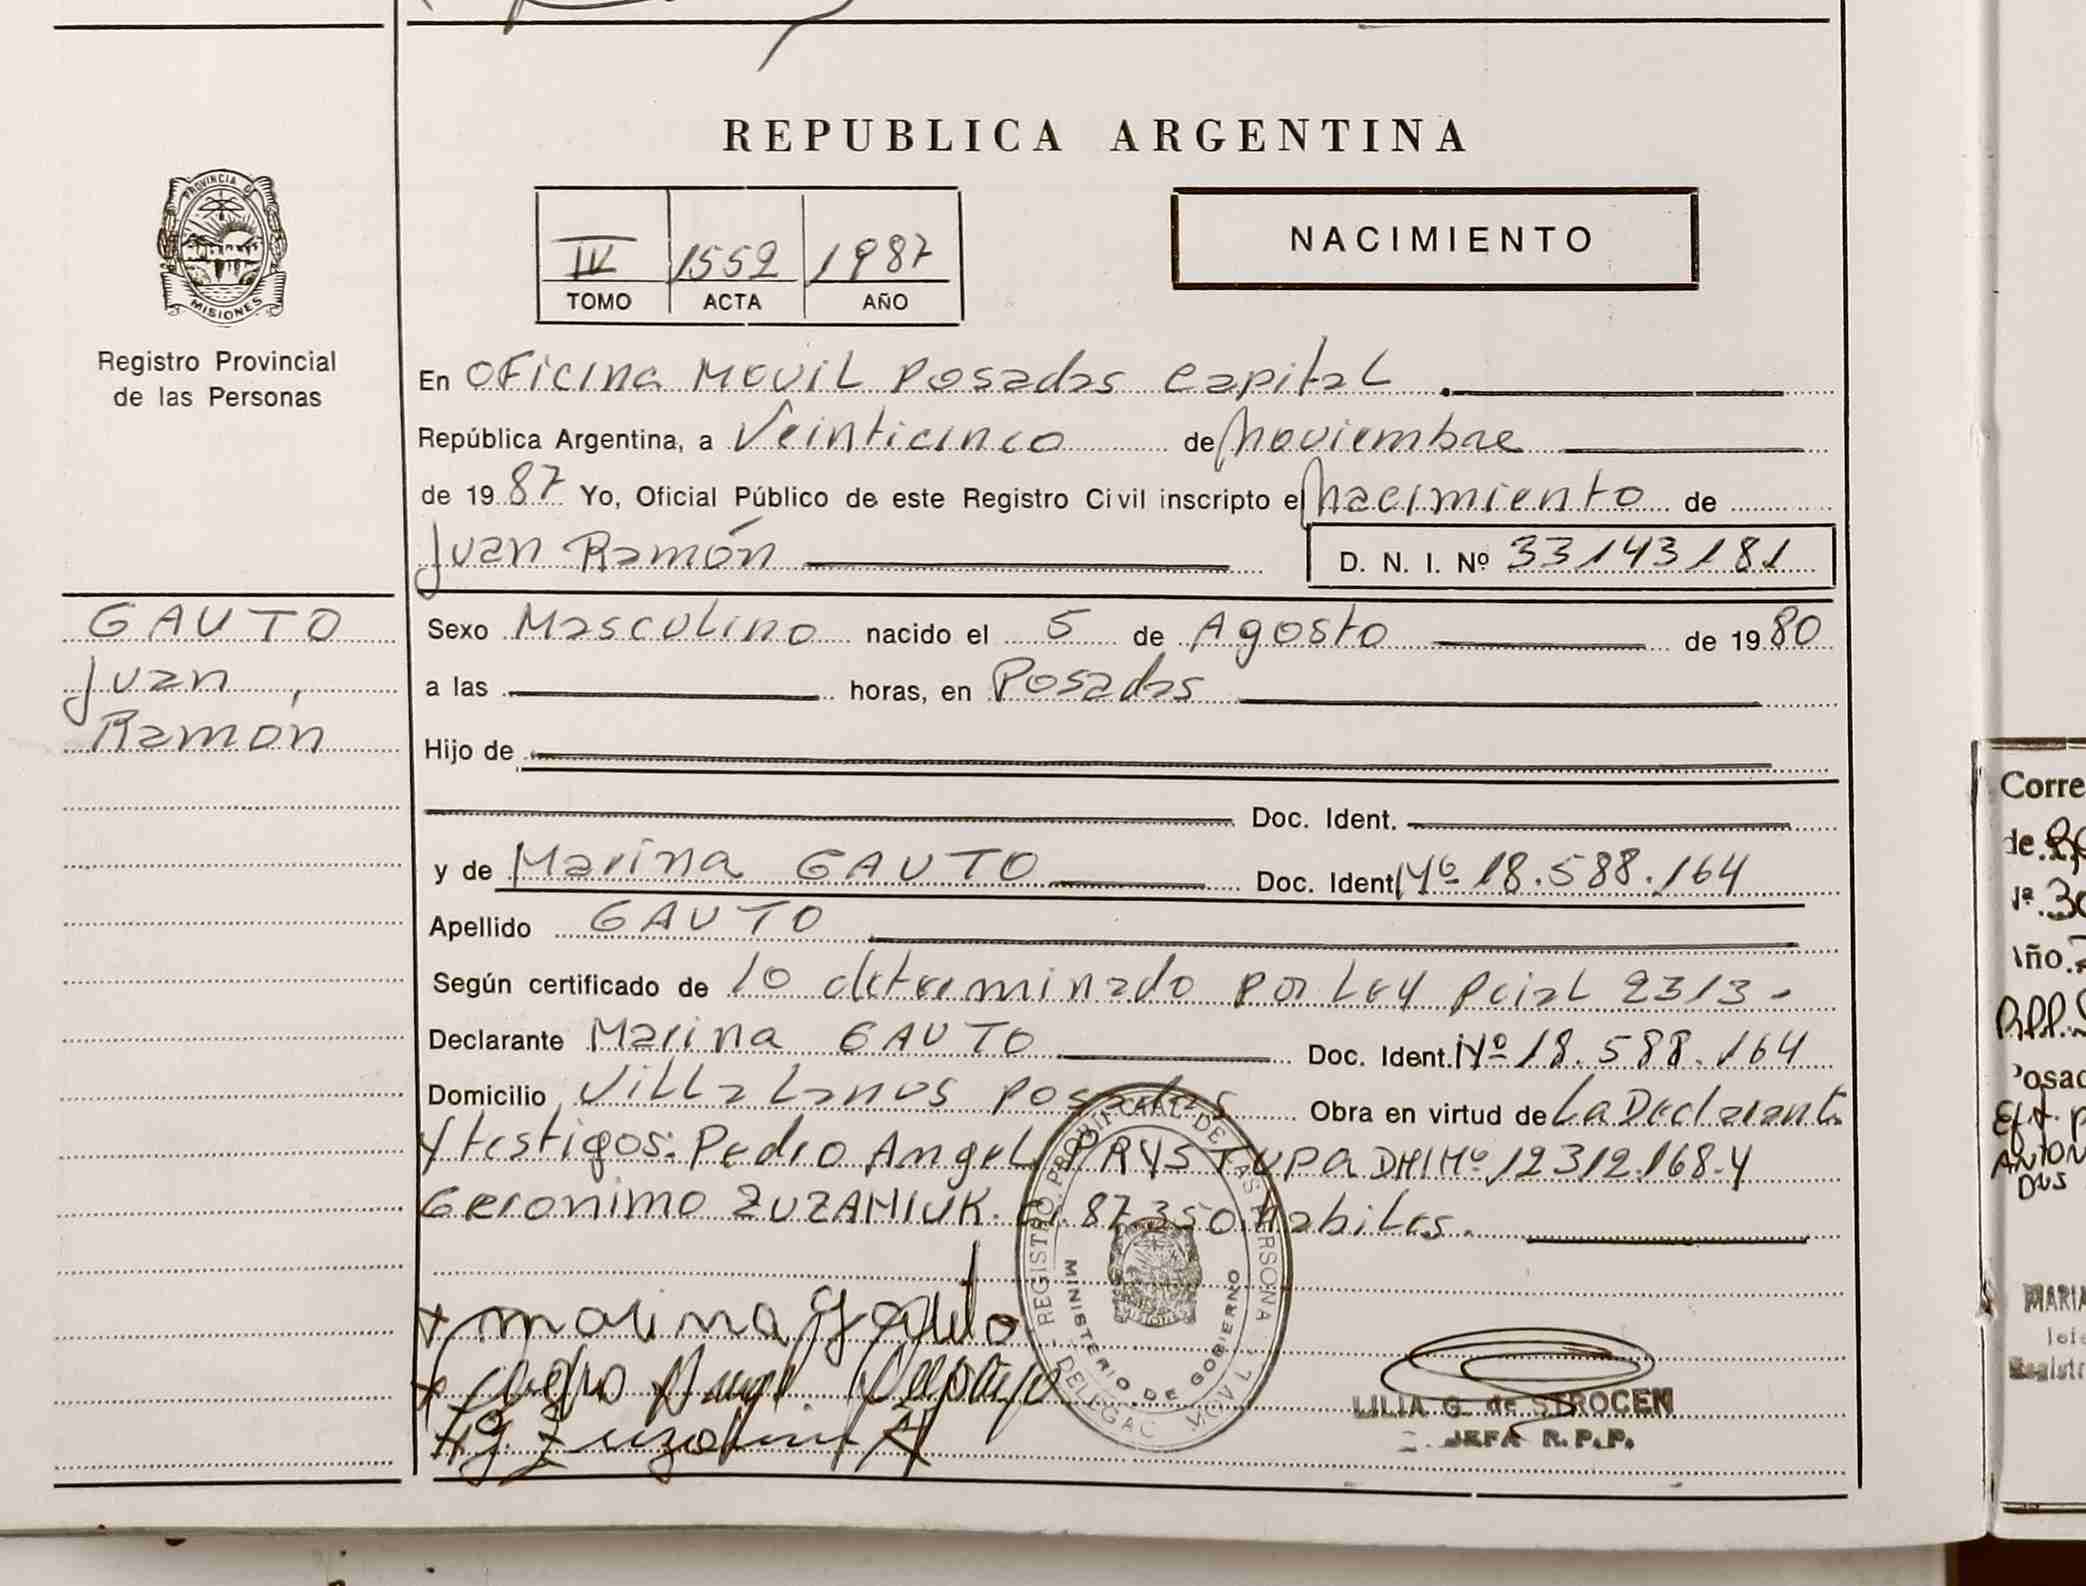 REPUBLICA ARGENTINA
PROVINCIA DE
MISIONES
Registro Provincial
de las Personas
IV 1552 1987
TOMO ACTA AÑO
NACIMIENTO
En Oficina Movil Posadas Capital
República Argentina, a Veinticinco de Noviembre
de 1987 Yo, Oficial Público de este Registro Civil inscripto el nacimiento de
Juan Ramón D. N. I. Nº 33143181
GAUTO
Juan
Ramón
Sexo Masculino nacido el 5 de Agosto de 1980
a las horas, en Posadas
Hijo de
Doc. Ident.
y de Marina GAUTO Doc. Ident. Nº 18.588.164
Apellido GAUTO
Según certificado de lo determinado por Ley Pcial 2313-
Declarante Marina GAUTO Doc. Ident. Nº 18.588.164
Domicilio Villa Lanus Posadas Obra en virtud de La Declarante
y testigos: Pedro Angel PRYSTUPA DNI Nº 12312.168.y
Geronimo ZUZANIUK. 87.350. Habiles.
marina
REGISTRO PROVINCIAL DE LAS PERSONA
MINISTERIO DE GOBIERNO
DELEGAC MOVIL
LILIA G. de STROCEN
JEFA R.P.P.
Corre
de
Nª 30
Año
R.P.P.
Posad
MARIA
Registr